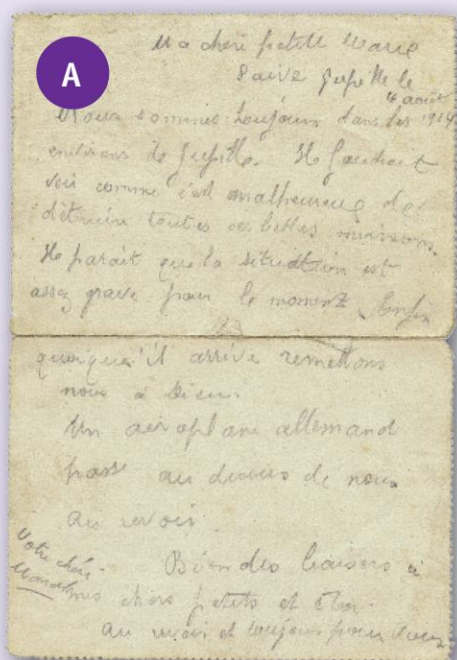 A
Ma chere petite Marie
Saive Jupille le
4 aout
1914
Nous sommes toujours dans les
environs de Jupille. Il faudrait
voir comme c'est malheureux de
détruire toutes ces belles maisons.
Il parait que la situation est
assez grave pour le moment. Enfin
quoiqu'il arrive remettons
nous à Dieu.
Un aéroplane allemand
passe au dessus de nous
au revoir.
Bien des baisers à
mes chers petits et
au revoir et toujours pour
Votre cher